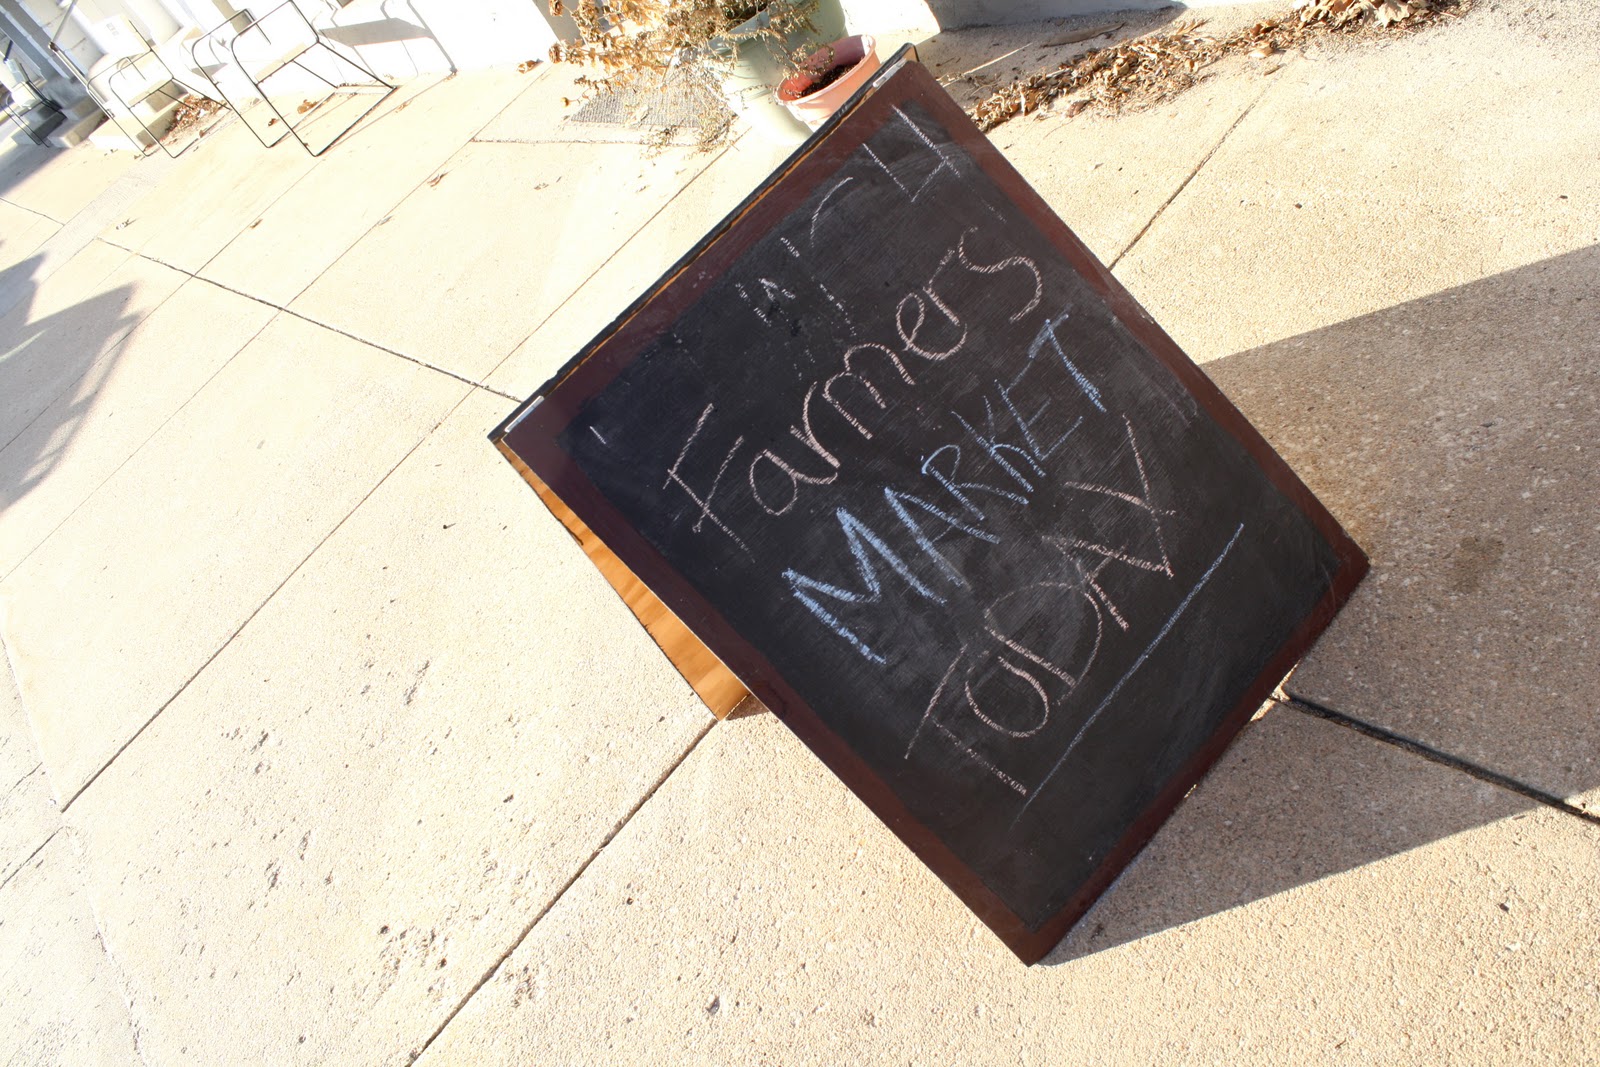 Farmers
MARKET
TODAY